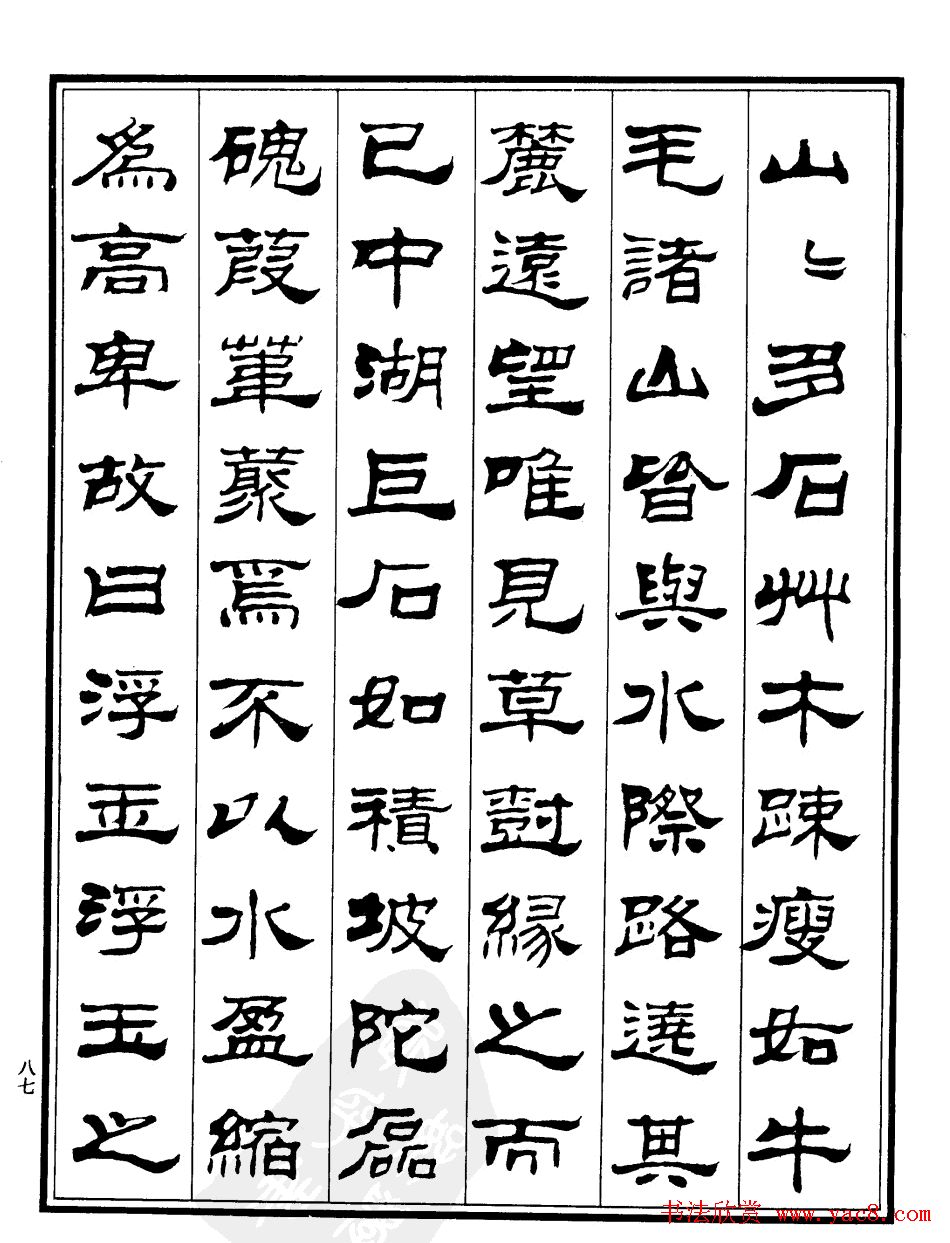 山〻多石艸木疎瘦如牛
毛諸山皆與水際路遶其
麓遠望唯見草樹緣之而
已中湖巨石如積坡陀磊
磈葭葦叢焉不以水盈縮
為高卑故曰浮玉浮玉之
八七
书法欣赏 www.yac8.com